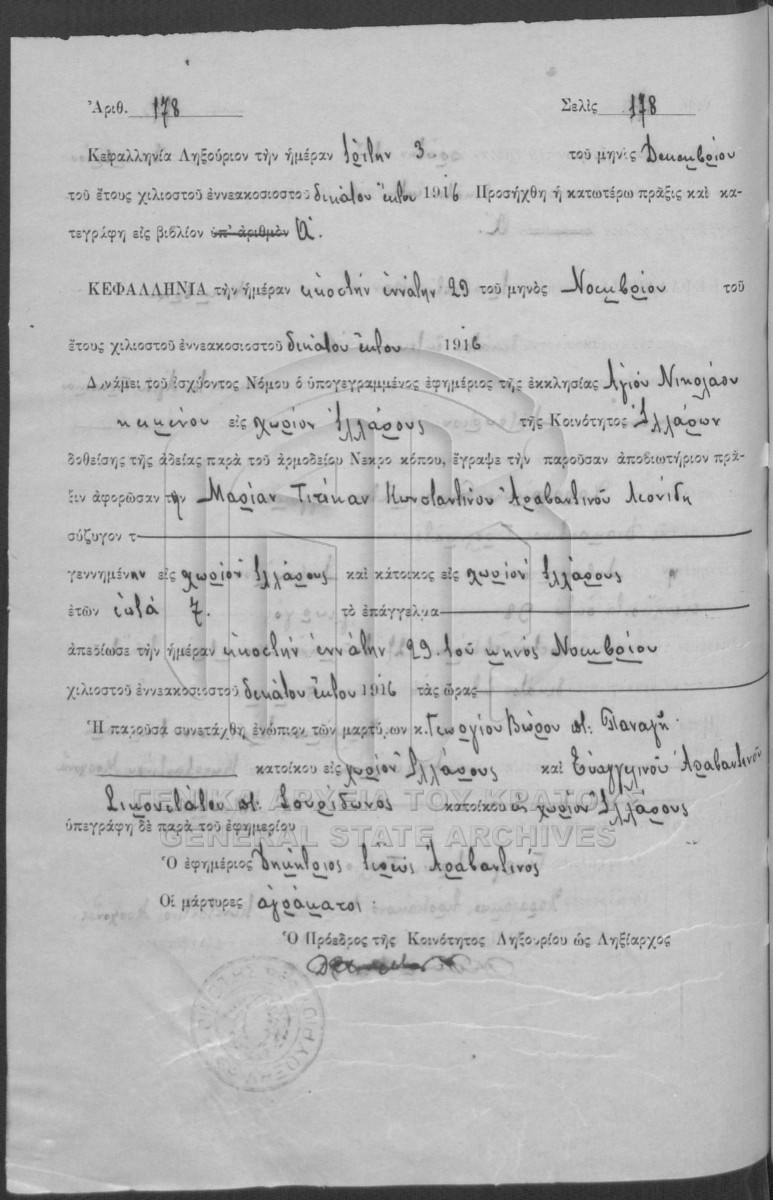 Ἀριθ. 178 Σελὶς 178
Κεφαλληνία Ληξούριον τὴν ἡμέραν τρίτην 3 τοῦ μηνὸς Δεκεμβρίου
τοῦ ἔτους χιλιοστοῦ ἐννεακοσιοστοῦ δεκάτου ἕκτου 1916 Προσήχθη ἡ κατωτέρω πρᾶξις καὶ κα-
τεγράφη εἰς βιβλίον ὑπ' ἀριθμὸν Α΄.
ΚΕΦΑΛΛΗΝΙΑ τὴν ἡμέραν εἰκοστὴν ἐννάτην 29 τοῦ μηνὸς Νοεμβρίου τοῦ
ἔτους χιλιοστοῦ ἐννεακοσιοστοῦ δεκάτου ἕκτου 1916
Δυνάμει τοῦ ἰσχύοντος Νόμου ὁ ὑπογεγραμμένος ἐφημέριος τῆς ἐκκλησίας Ἁγίου Νικολάου
κειμένου εἰς χωρίον τῆς Κοινότητος
δοθείσης τῆς ἀδείας παρὰ τοῦ ἁρμοδείου Νεκροκόπου, ἔγραψε τὴν παροῦσαν ἀποβιωτήριον πρᾶ-
ξιν ἀφορῶσαν τὴν Μαρίαν Κωνσταντίνου Ἀραβαντινοῦ Λεονίδη
σύζυγον τ
γεννημένην εἰς χωρίον καὶ κάτοικος εἰς χωρίον
ἐτῶν ἑπτά 7. τὸ ἐπάγγελμα
ἀπεβίωσε τὴν ἡμέραν εἰκοστὴν ἐννάτην 29 τοῦ μηνὸς Νοεμβρίου
χιλιοστοῦ ἐννεακοσιοστοῦ δεκάτου ἕκτου 1916 τὰς ὥρας
Ἡ παροῦσα συνετάχθη ἐνώπιον τῶν μαρτύρων κ. Γεωργίου Βώρου Παναγῆ
κατοίκου εἰς χωρίον καὶ Εὐαγγελινοῦ Ἀραβαντινοῦ
Σπυρίδωνος κατοίκου εἰς χωρίον
ΓΕΝΙΚΑ ΑΡΧΕΙΑ ΤΟΥ ΚΡΑΤΟΥΣ
GENERAL STATE ARCHIVES
ὑπεγράφη δὲ παρὰ τοῦ ἐφημερίου
Ὁ ἐφημέριος Δημήτριος ἱερεὺς Ἀραβαντινός
Οἱ μάρτυρες ἀγράματοι
Ὁ Πρόεδρος τῆς Κοινότητος Ληξουρίου ὡς Ληξίαρχος